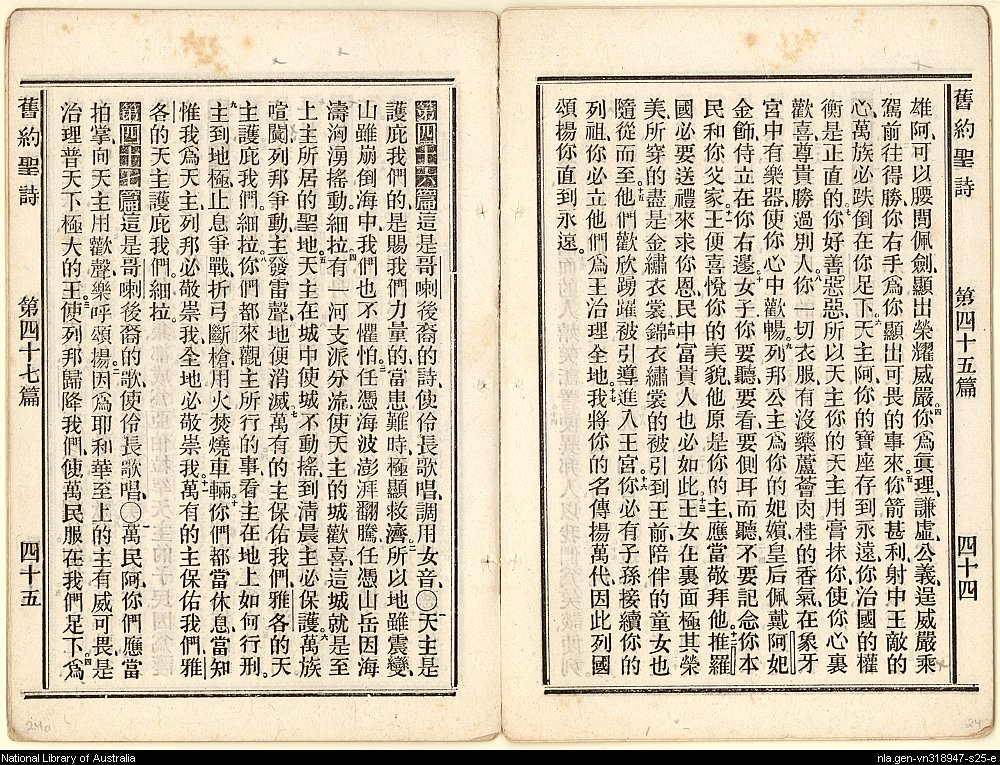 舊約聖詩 第四十五篇 四十四
雄阿、可以腰間佩劍、顯出榮耀威嚴、四你爲眞理謙虛公義、逞威嚴乘
駕前往得勝、你右手爲你顯出可畏的事來、五你箭甚利、射中王敵的
心、萬族必跌倒在你足下、六天主阿、你的寶座存到永遠、你治國的權
衡是正直的、七你好善惡惡、所以天主、你的天主用膏抹你、使你心裏
歡喜尊貴、勝過別人、八你一切衣服有沒藥蘆薈肉桂的香氣、在象牙
宮中有樂器使你心中歡暢、九列邦公主爲你的妃嬪、皇后佩戴阿妃
金飾侍立在你右邊、十女子你要聽、要看、要側耳而聽、不要記念你本
民和你父家、十一王便喜悅你的美貌、他原是你的主、應當敬拜他、十二推羅
國必要送禮來求你恩、民中富貴人也必如此、十三王女在裏面極其榮
美、所穿的盡是金繡衣裳、十四錦衣繡裳的被引到王前、陪伴的童女也
隨從而至、十五他們歡欣踴躍被引導進入王宮、十六你必有子孫接續你的
列祖、你必立他們爲王治理全地、十七我將你的名傳揚萬代、因此列國
頌揚你直到永遠。
舊約聖詩 第四十七篇 四十五
第四十六篇 這是哥喇後裔的詩、使伶長歌唱、調用女音、○一天主是
護庇我們的、是賜我們力量的、當患難時極顯救濟、二所以地雖震變、
山雖崩倒海中、我們也不懼怕、三任憑海波澎湃翻騰、任憑山岳因海
濤洶湧搖動、細拉、四有一河支派分流、使天主的城歡喜、這城就是至
上主所居的聖地、五天主在城中、使城不動搖、到清晨主必保護、六萬族
喧闐、列邦爭動、主發雷聲、地便消滅、七萬有的主保佑我們、雅各的天
主護庇我們、細拉、八你們都來觀主所行的事、看主在地上如何行刑、
九主到地極止息爭戰、折弓斷槍、用火焚燒車輛、十你們都當休息、當知
惟我爲天主、列邦必敬崇我、全地必敬崇我、十一萬有的主保佑我們、雅
各的天主護庇我們、細拉。
第四十七篇 這是哥喇後裔的歌、使伶長歌唱、○一萬民阿、你們應當
拍掌、向天主用歡聲樂呼頌揚、二因爲耶和華至上的主有威可畏、是
治理普天下極大的王、三使列邦歸降我們、使萬民服在我們足下、四爲
24a
24
National Library of Australia
nla.gen-vn318947-s25-e